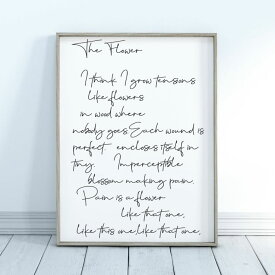 The Flower
I think I grow tensions
like flowers
in wood where
nobody goes Each wound is
perfect encloses itself in
tiny Imperceptible
blossom making pain.
Pain is a flower
like that one,
like this one like that one.